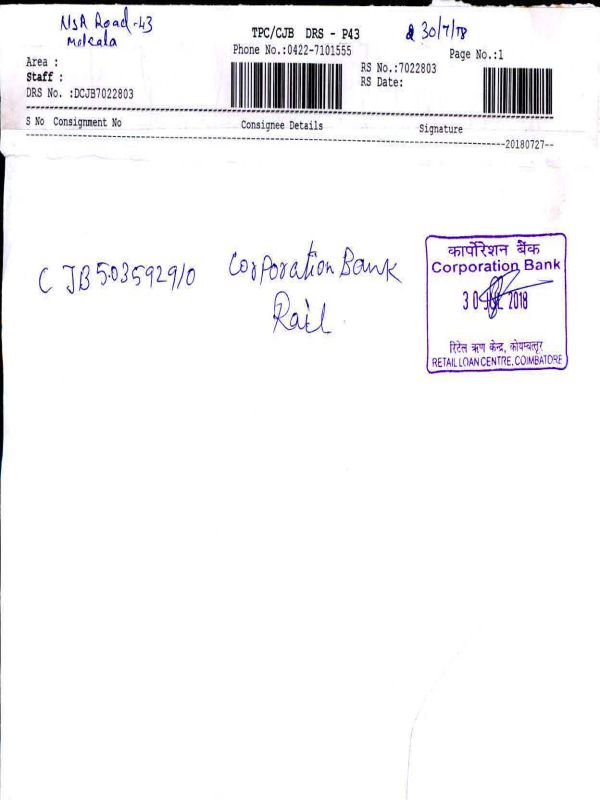 NSR Road-43
TPC/CJB DRS - P43
30/7/18
Mekala
Phone No.:0422-7101555
Page No.:1
Area :
RS No.:7022803
Staff :
RS Date:
DRS No. :DCJB7022803
S No Consignment No Consignee Details Signature
20180727
CJB503592910 Corporation Bank
Rail
कार्पोरेशन बैंक
Corporation Bank
30 JUL 2018
रिटेल ऋण केन्द्र, कोयम्बत्तूर
RETAIL LOAN CENTRE, COIMBATORE